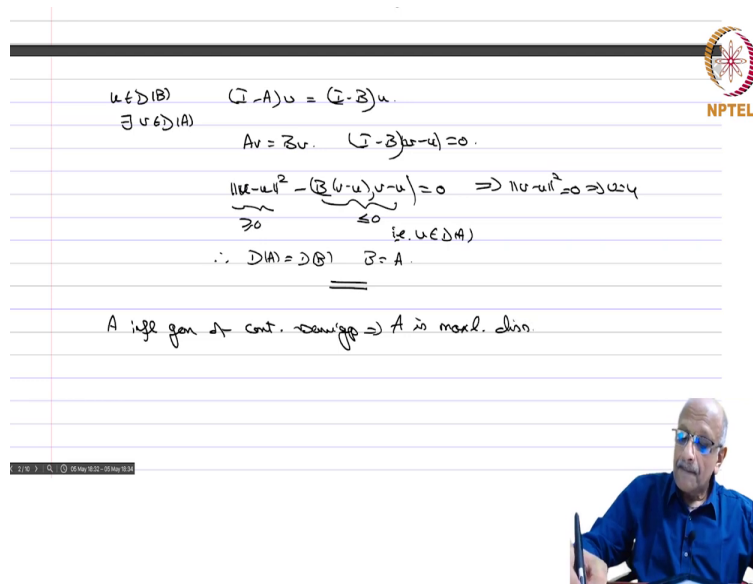 u ∈ D(B) (I-A)v = (I-B)u.
∃ v ∈ D(A)
Av = Bv. (I-B)(v-u) = 0.
||v-u||² - (B(v-u), v-u) = 0 ⇒ ||v-u||² = 0 ⇒ v=u
≥0 ≤0
i.e. u ∈ D(A)
∴ D(A) = D(B) B = A.
A infl gen of cont. semigp ⇒ A is maxl. diss.
NPTEL
2/10 05 May 18:32 - 05 May 18:34